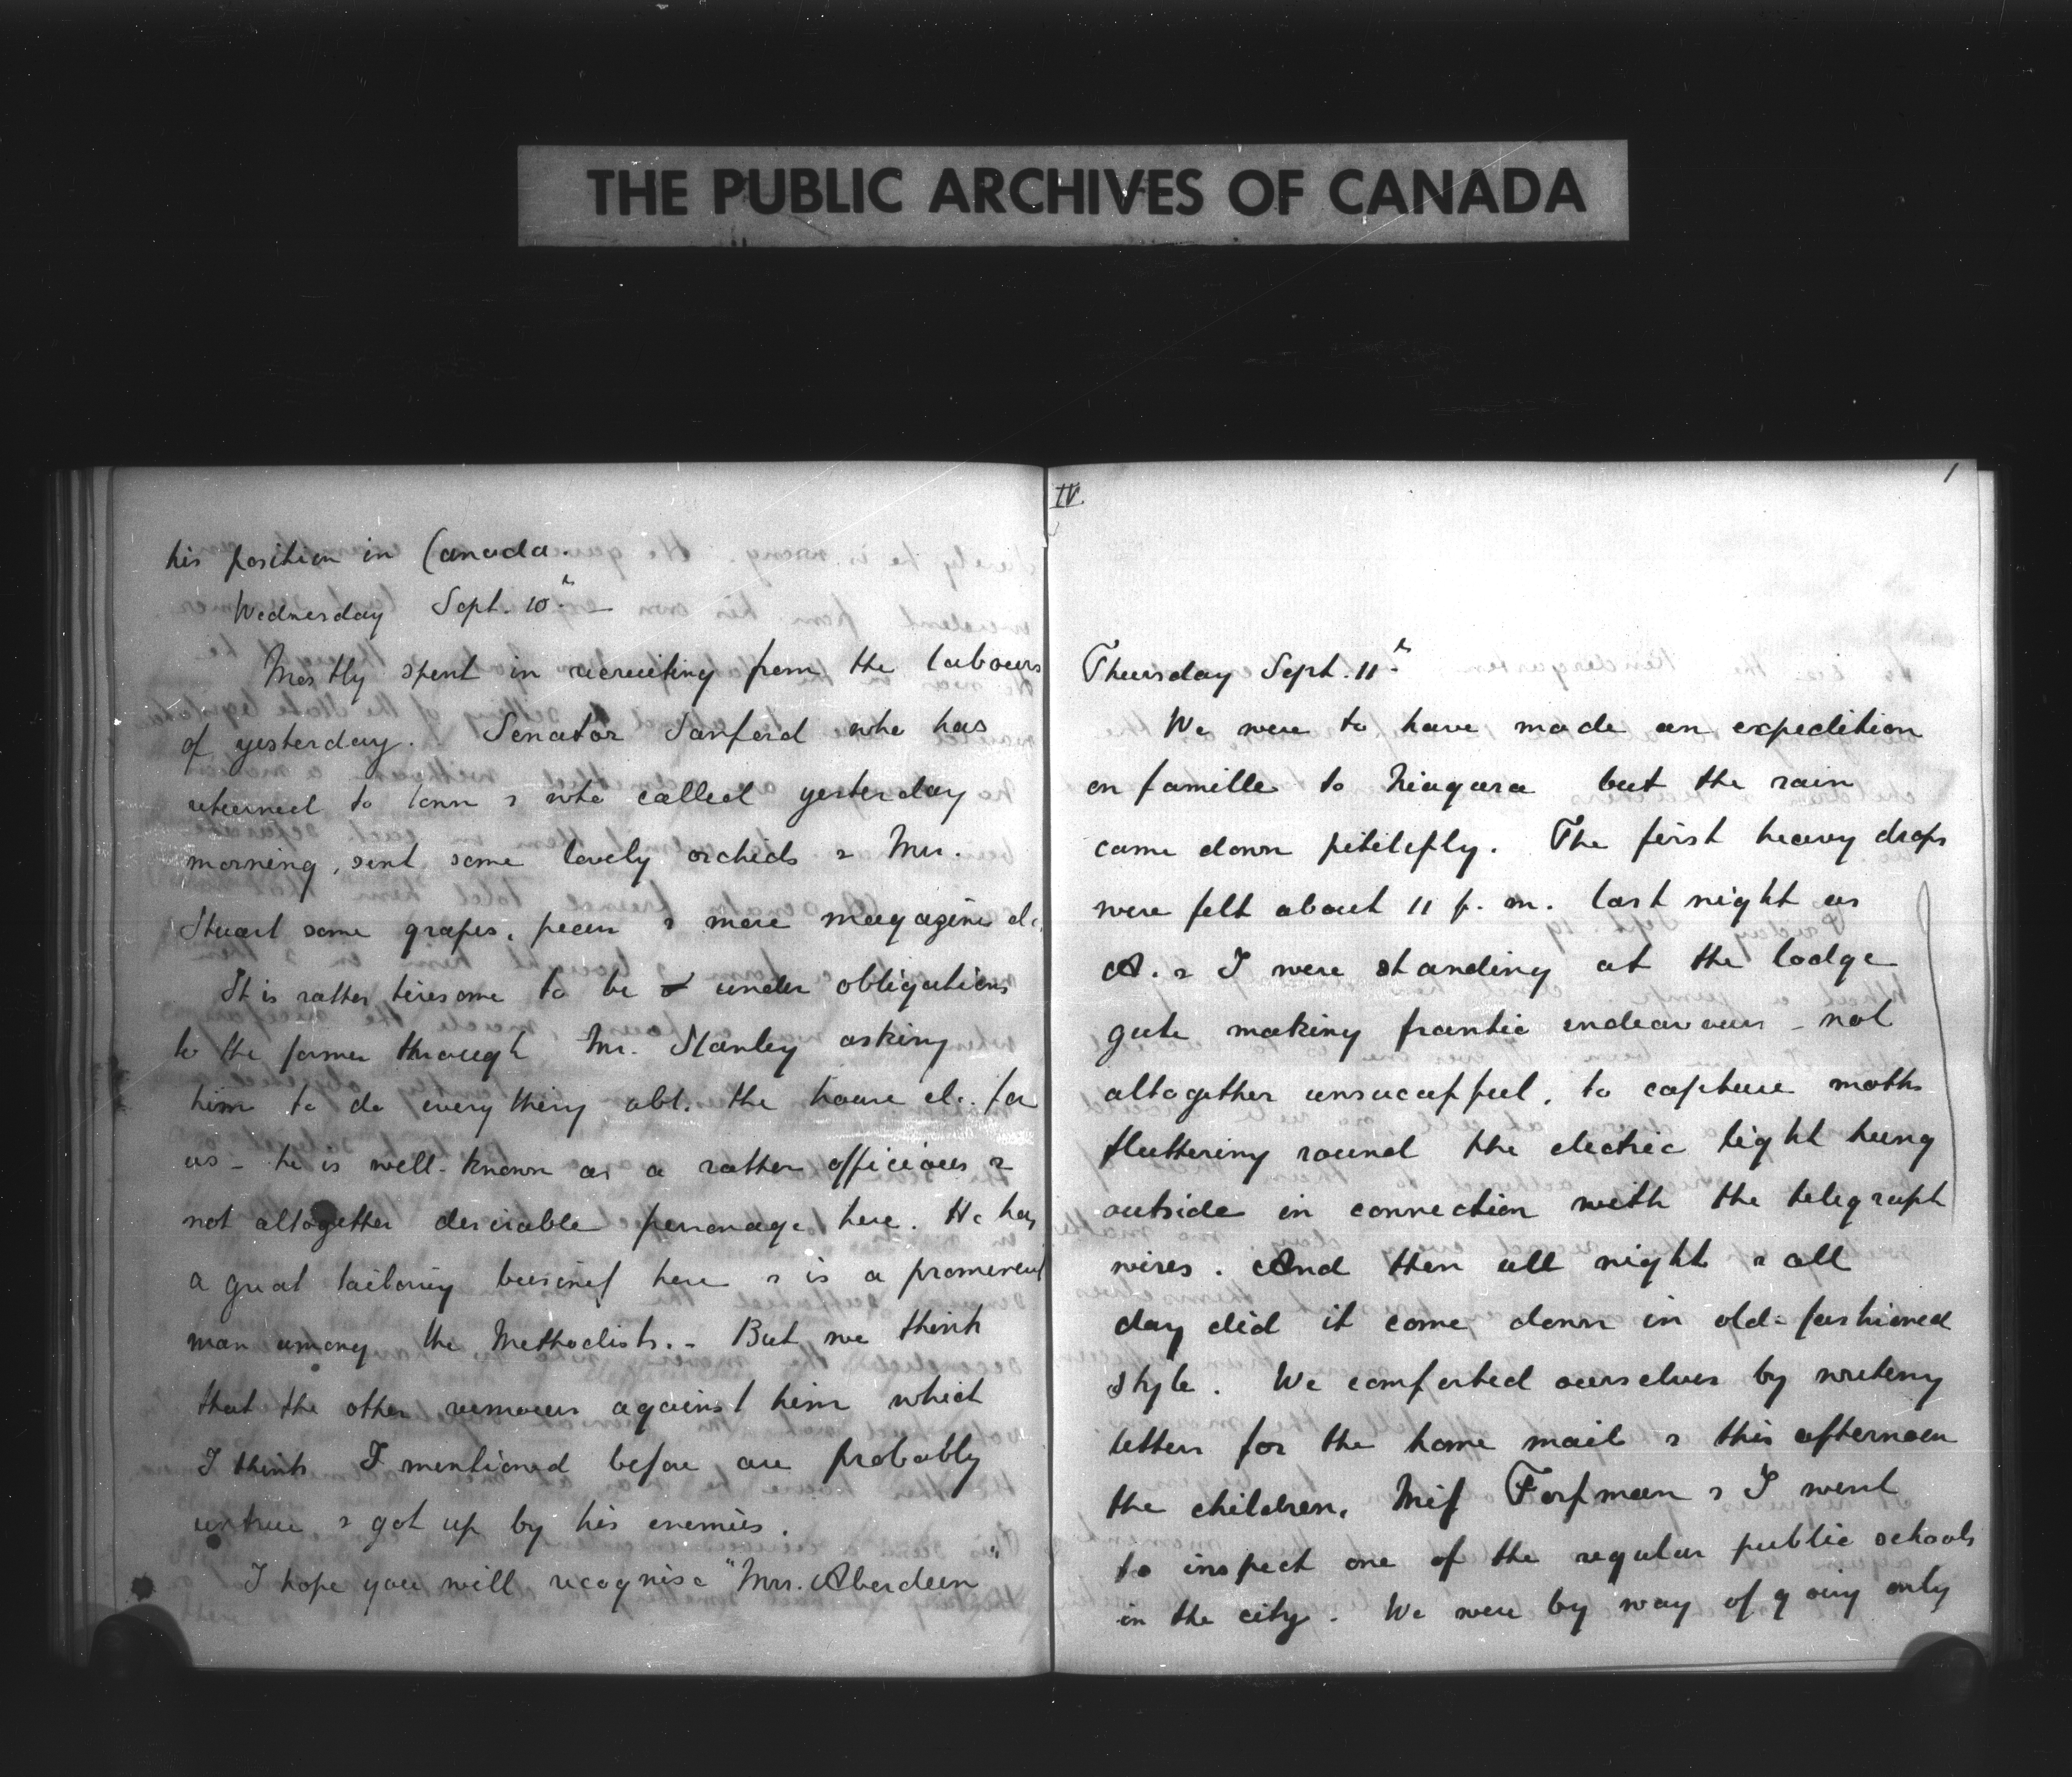 THE PUBLIC ARCHIVES OF CANADA
his position in Canada.
Wednesday Sept. 10th
Mostly spent in recruiting from the labours
of yesterday. Senator Sanford who has
returned to town & who called yesterday
morning, sent some lovely orchids & Mrs.
Stuart some grapes, & more magazines etc.
It is rather tiresome to be under obligations
to the former through Mr. Stanley asking
him to do everything abt. the house etc. for
us - he is well-known as a rather officious &
not altogether desirable personage here. He has
a great tailoring business here & is a prominent
man among the Methodists. - But we think
that the other rumours against him which
I think I mentioned before are probably
untrue & got up by his enemies.
I hope you will recognise "Mrs. Aberdeen"
IV.
1
Thursday Sept. 11th
We were to have made an expedition
en famille to Niagara but the rain
came down pitilessly. The first heavy drops
were felt about 11 p.m. last night as
A. & I were standing at the lodge
gate making frantic endeavours - not
altogether unsuccessful, to capture moths
fluttering round the electric light hung
outside in connection with the telegraph
wires. And then all night & all
day did it come down in old-fashioned
style. We comforted ourselves by writing
letters for the home mail & this afternoon
the children, Miss Forsman & I went
to inspect one of the regular public schools
in the city. We were by way of going only